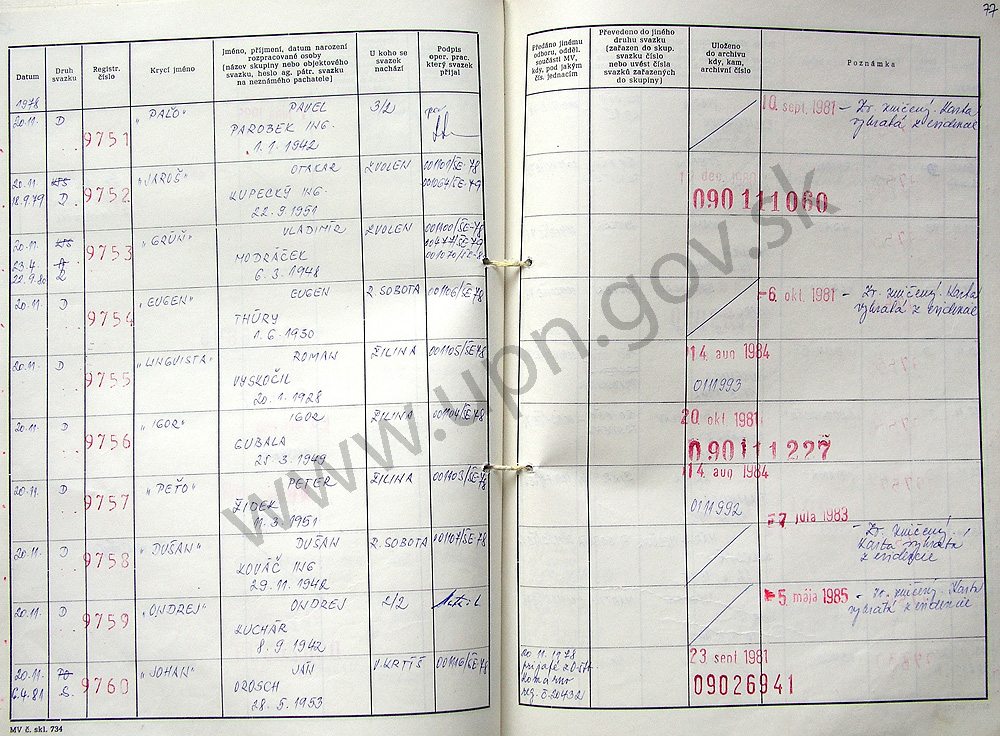 77
Datum
Druh svazku
Registr. číslo
Krycí jméno
Jméno, příjmení, datum narození
rozpracované osoby
[název skupiny nebo objektového
svazku, heslo ag. pátr. svazku
na neznámého pachatele]
U koho se
svazek
nachází
Podpis
oper. prac.
který svazek
přijal
Předáno jinému
odboru, odděl.
součásti MV,
kdy, pod jakým
čís. jednacím
Převedeno do jiného
druhu svazku
(zařazen do skup.
svazku číslo
nebo uvést čísla
svazků zařazených
do skupiny]
Uloženo
do archivu
kdy, kam,
archivní číslo
Poznámka
1978
20.11. D 9751 „PAĽO“ PAVEL 3/2
PAROBEK ING.
1.1.1942
10. sept. 1981 – Zv. zničený. Karta
vybratá z evidence
20.11. D 9752 „JAROŠ“ OTAKAR ZVOLEN 001101/ŠE-78
18.9.79
KUPECKÝ ING.
22.9.1951
090 111 060
20.11. 9753 „GRŮŇ“ VLADIMÍR ZVOLEN 001100/ŠE-78
23.4.
22.9.80
MODRÁČEK
6.3.1948
20.11. D 9754 „EUGEN“ EUGEN R. SOBOTA 001106/ŠE-78
THÜRY
1.6.1930
6. okt. 1981 – Zv. zničený. Karta
vybratá z evidence
20.11. D 9755 „LINGVISTA“ ROMAN ŽILINA 001105/ŠE-78
VYSKOČIL
20.1.1928
14. aug 1984
0111993
20.11. D 9756 „IGOR“ IGOR ŽILINA 001104/ŠE-78
GUBALA
28.3.1949
20. okt. 1981
090 111 227
20.11. D 9757 „PEŤO“ PETER ŽILINA 001103/ŠE-78
ŽIDEK
11.3.1951
14. aug 1984
0111992
20.11. D 9758 „DUŠAN“ DUŠAN R. SOBOTA 001107/ŠE-78
KOVÁČ ING
29.11.1942
7 júla 1983 – Zv. zničený.
Karta vybratá
z evidencie
20.11. D 9759 „ONDREJ“ ONDREJ 2/2
KUCHÁR
8.9.1942
5. mája 1985 – Zv. zničený. Karta
vybratá z evidence
20.11. 9760 „JOHAN“ JÁN V. KRTÍŠ 001116/ŠE-78
6.4.81 S.
OROSCH
28.5.1953
20.11.1978
Komárno
reg. č. 20432
23. sept 1981
09026941
MV č. skl. 734
www.upn.gov.sk